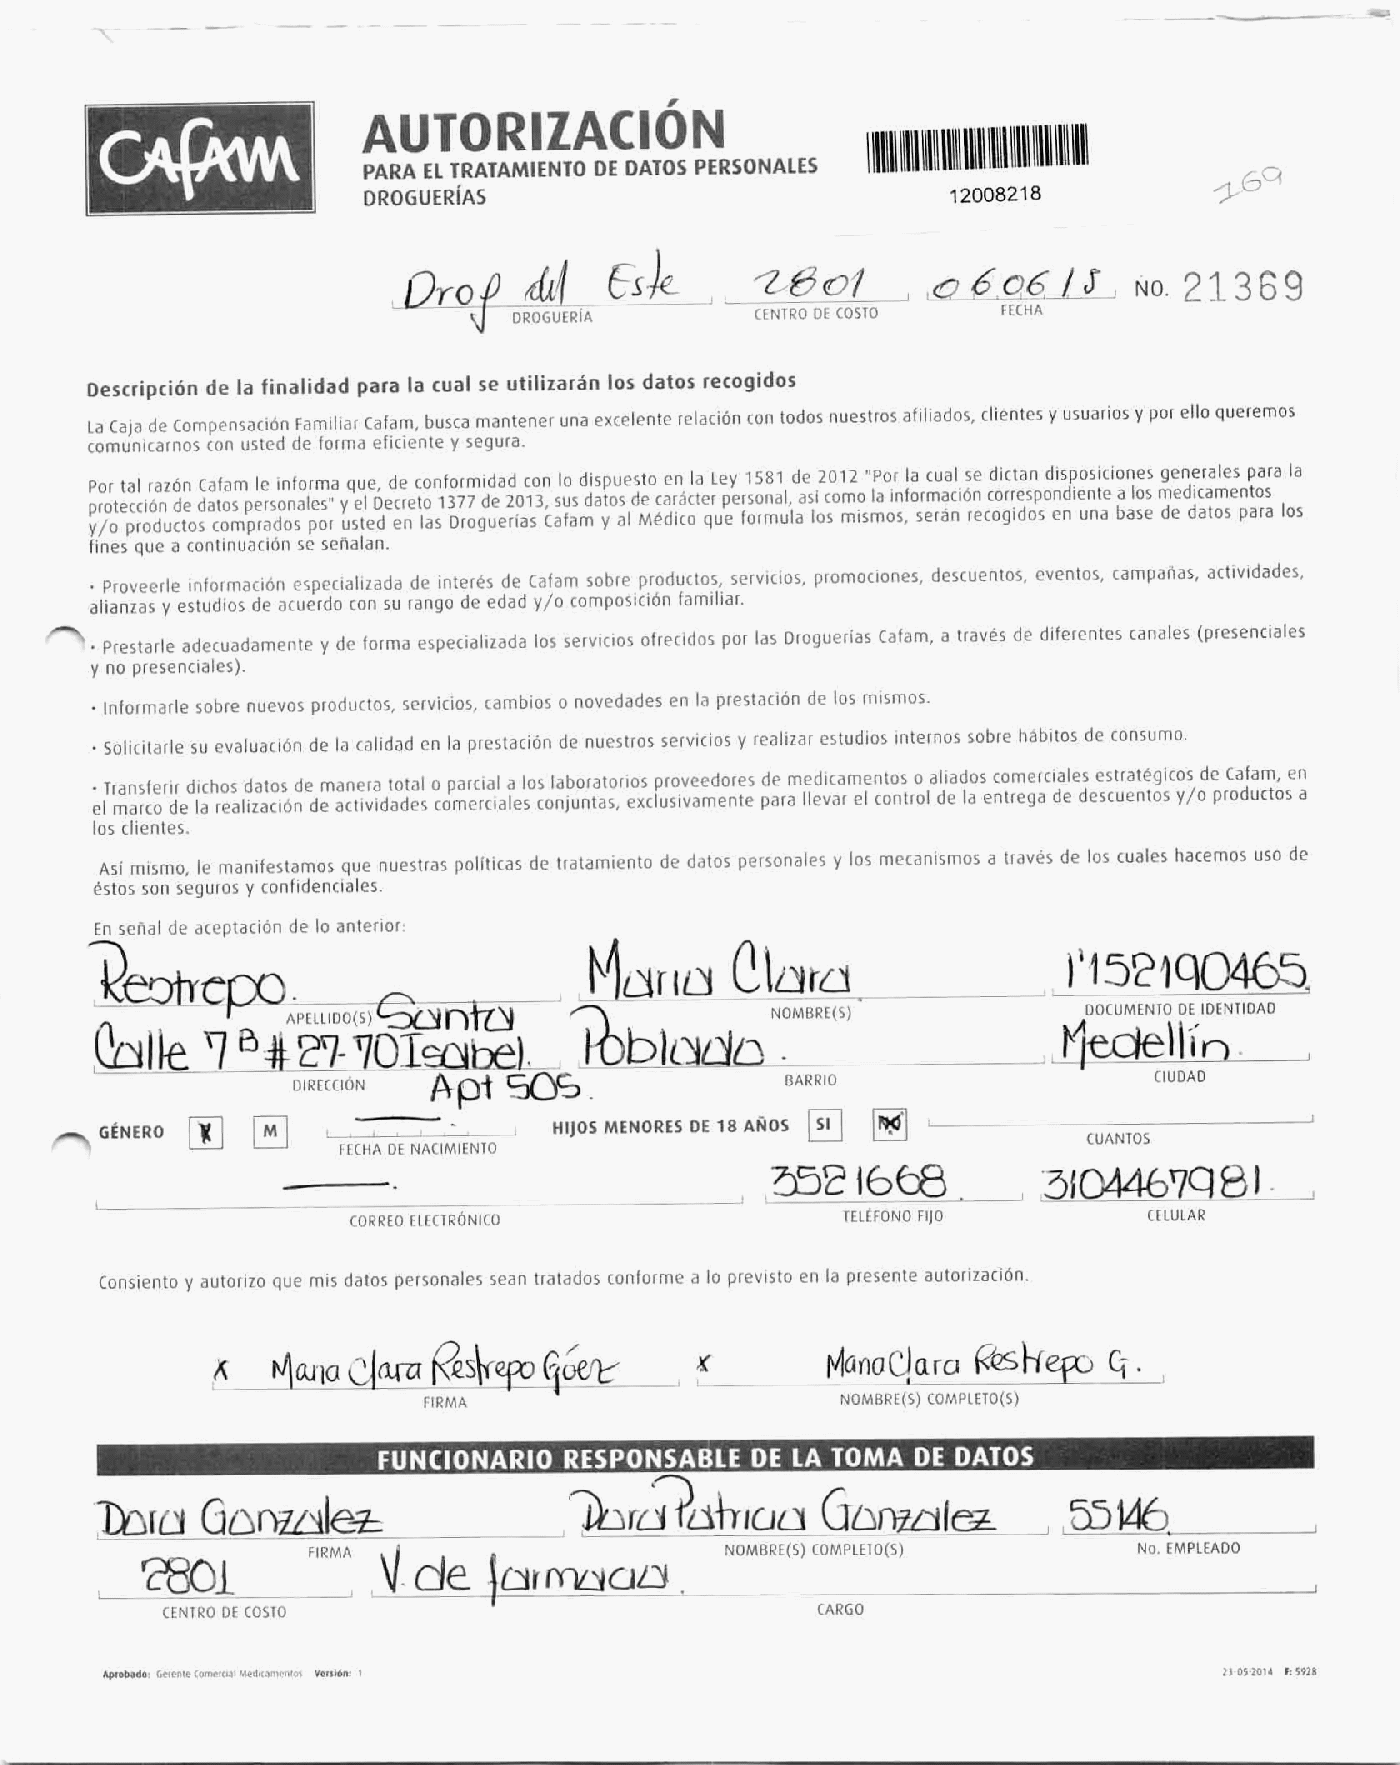 CAFAM
AUTORIZACIÓN
PARA EL TRATAMIENTO DE DATOS PERSONALES
DROGUERÍAS
12008218
169
Drog del Este 2801 060615 NO. 21369
DROGUERÍA CENTRO DE COSTO FECHA
Descripción de la finalidad para la cual se utilizarán los datos recogidos
La Caja de Compensación Familiar Cafam, busca mantener una excelente relación con todos nuestros afiliados, clientes y usuarios y por ello queremos
comunicarnos con usted de forma eficiente y segura.
Por tal razón Cafam le informa que, de conformidad con lo dispuesto en la Ley 1581 de 2012 "Por la cual se dictan disposiciones generales para la
protección de datos personales" y el Decreto 1377 de 2013, sus datos de carácter personal, así como la información correspondiente a los medicamentos
y/o productos comprados por usted en las Droguerías Cafam y al Médico que formula los mismos, serán recogidos en una base de datos para los
fines que a continuación se señalan.
· Proveerle información especializada de interés de Cafam sobre productos, servicios, promociones, descuentos, eventos, campañas, actividades,
alianzas y estudios de acuerdo con su rango de edad y/o composición familiar.
· Prestarle adecuadamente y de forma especializada los servicios ofrecidos por las Droguerías Cafam, a través de diferentes canales (presenciales
y no presenciales).
· Informarle sobre nuevos productos, servicios, cambios o novedades en la prestación de los mismos.
· Solicitarle su evaluación de la calidad en la prestación de nuestros servicios y realizar estudios internos sobre hábitos de consumo.
· Transferir dichos datos de manera total o parcial a los laboratorios proveedores de medicamentos o aliados comerciales estratégicos de Cafam, en
el marco de la realización de actividades comerciales conjuntas, exclusivamente para llevar el control de la entrega de descuentos y/o productos a
los clientes.
Así mismo, le manifestamos que nuestras políticas de tratamiento de datos personales y los mecanismos a través de los cuales hacemos uso de
éstos son seguros y confidenciales.
En señal de aceptación de lo anterior:
Restrepo. Maria Clara 1'152190465
APELLIDO(S) NOMBRE(S) DOCUMENTO DE IDENTIDAD
Calle 7B # 27-70 Santa Isabel. Poblado. Medellín.
DIRECCIÓN Apt 505. BARRIO CIUDAD
GÉNERO X M FECHA DE NACIMIENTO HIJOS MENORES DE 18 AÑOS SI NO CUANTOS
3521668 3104467981.
CORREO ELECTRÓNICO TELÉFONO FIJO CELULAR
Consiento y autorizo que mis datos personales sean tratados conforme a lo previsto en la presente autorización.
x Maria Clara Restrepo Góez x Maria Clara Restrepo G.
FIRMA NOMBRE(S) COMPLETO(S)
FUNCIONARIO RESPONSABLE DE LA TOMA DE DATOS
Dora Gonzalez Dora Patricia Gonzalez 55146
FIRMA NOMBRE(S) COMPLETO(S) No. EMPLEADO
2801 V. de farmacia.
CENTRO DE COSTO CARGO
Aprobado: Gerente Comercial Medicamentos Versión: 1 23-05-2014 F: 5928